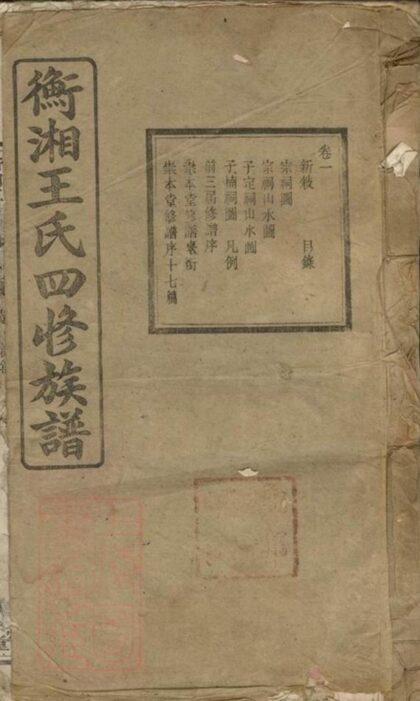 衡湘王氏四修族譜
卷一
新敘 目錄
宗祠圖
宗祠山水圖
子定祠山水圖
子楠祠圖 凡例
前三屆修譜序
崇本堂修譜職銜
崇本堂修譜序十七篇